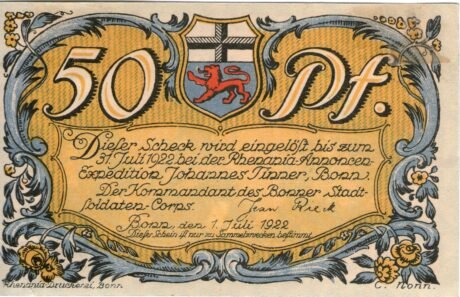 50 Pf.
Dieser Scheck wird eingelöst bis zum
31. Juli 1922 bei der Rhenania-Annoncen-
Expedition Johannes Tinner, Bonn.
Der Kommandant des Bonner Stadt-
soldaten-Corps. Jean Rieck
Bonn, den 1. Juli 1922
Dieser Schein ist nur zu Sammelzwecken bestimmt.
Rhenania-Druckerei, Bonn C. Nonn.